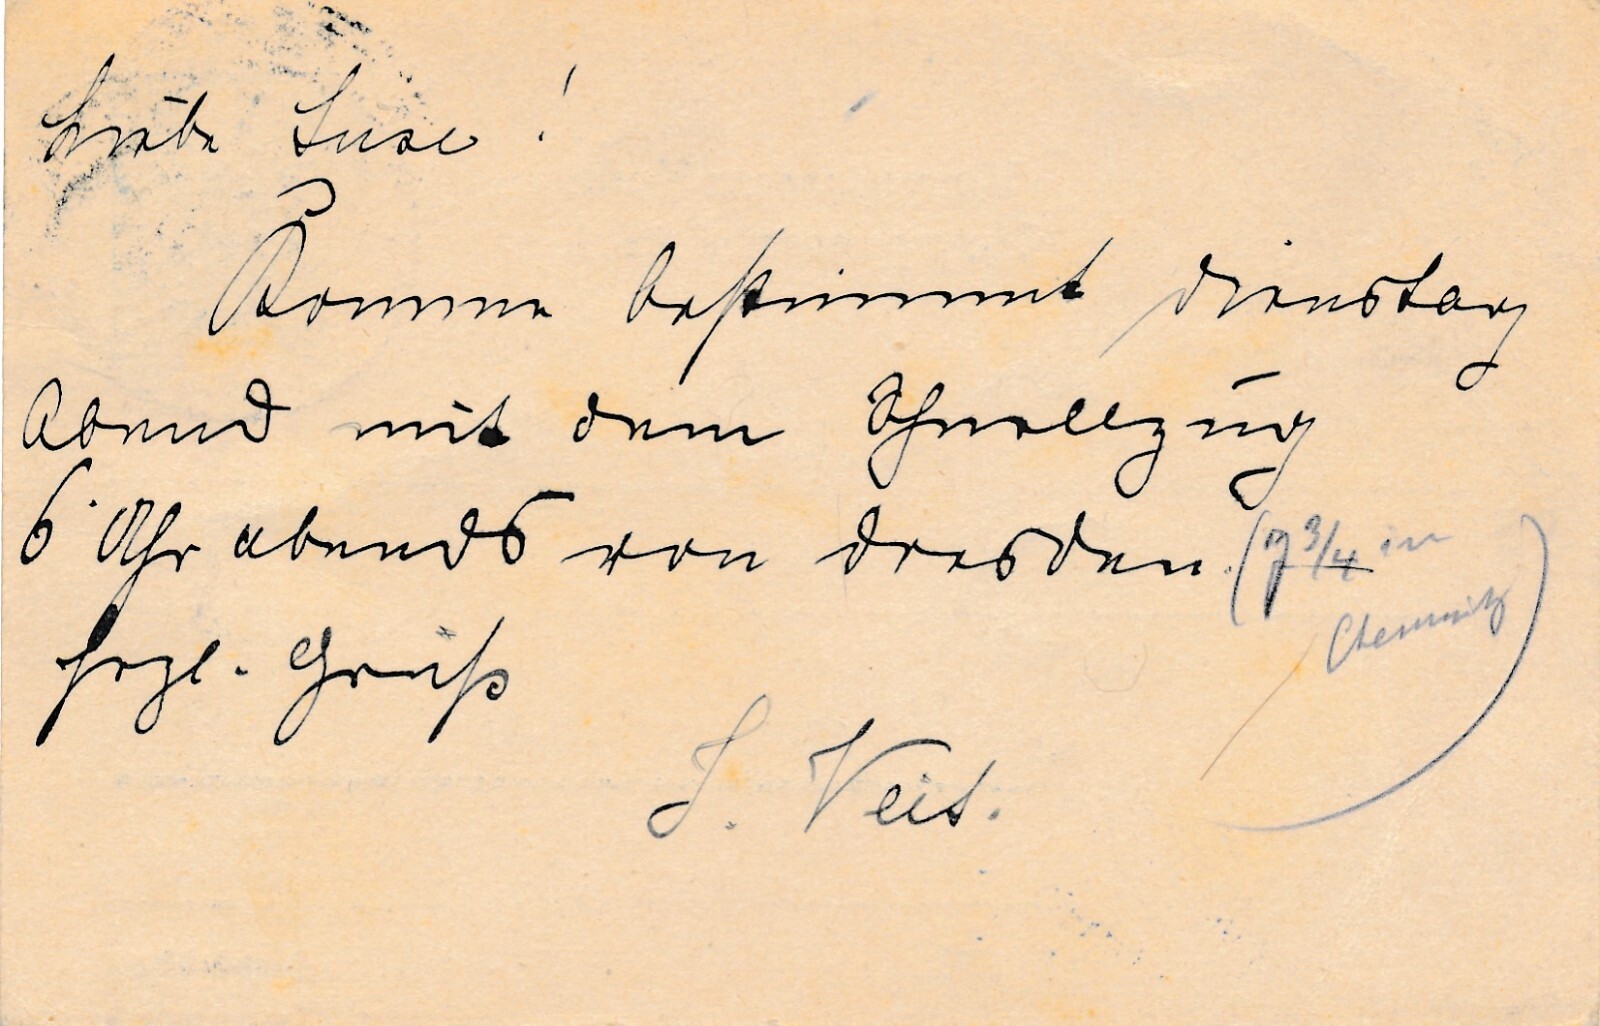 Liebe Suse!
Komme bestimmt Dienstag
Abend mit dem Schnellzug
6 Uhr abends von Dresden. (7 3/4 in
Chemnitz)
Hrzl. Gruß
J. Veit.